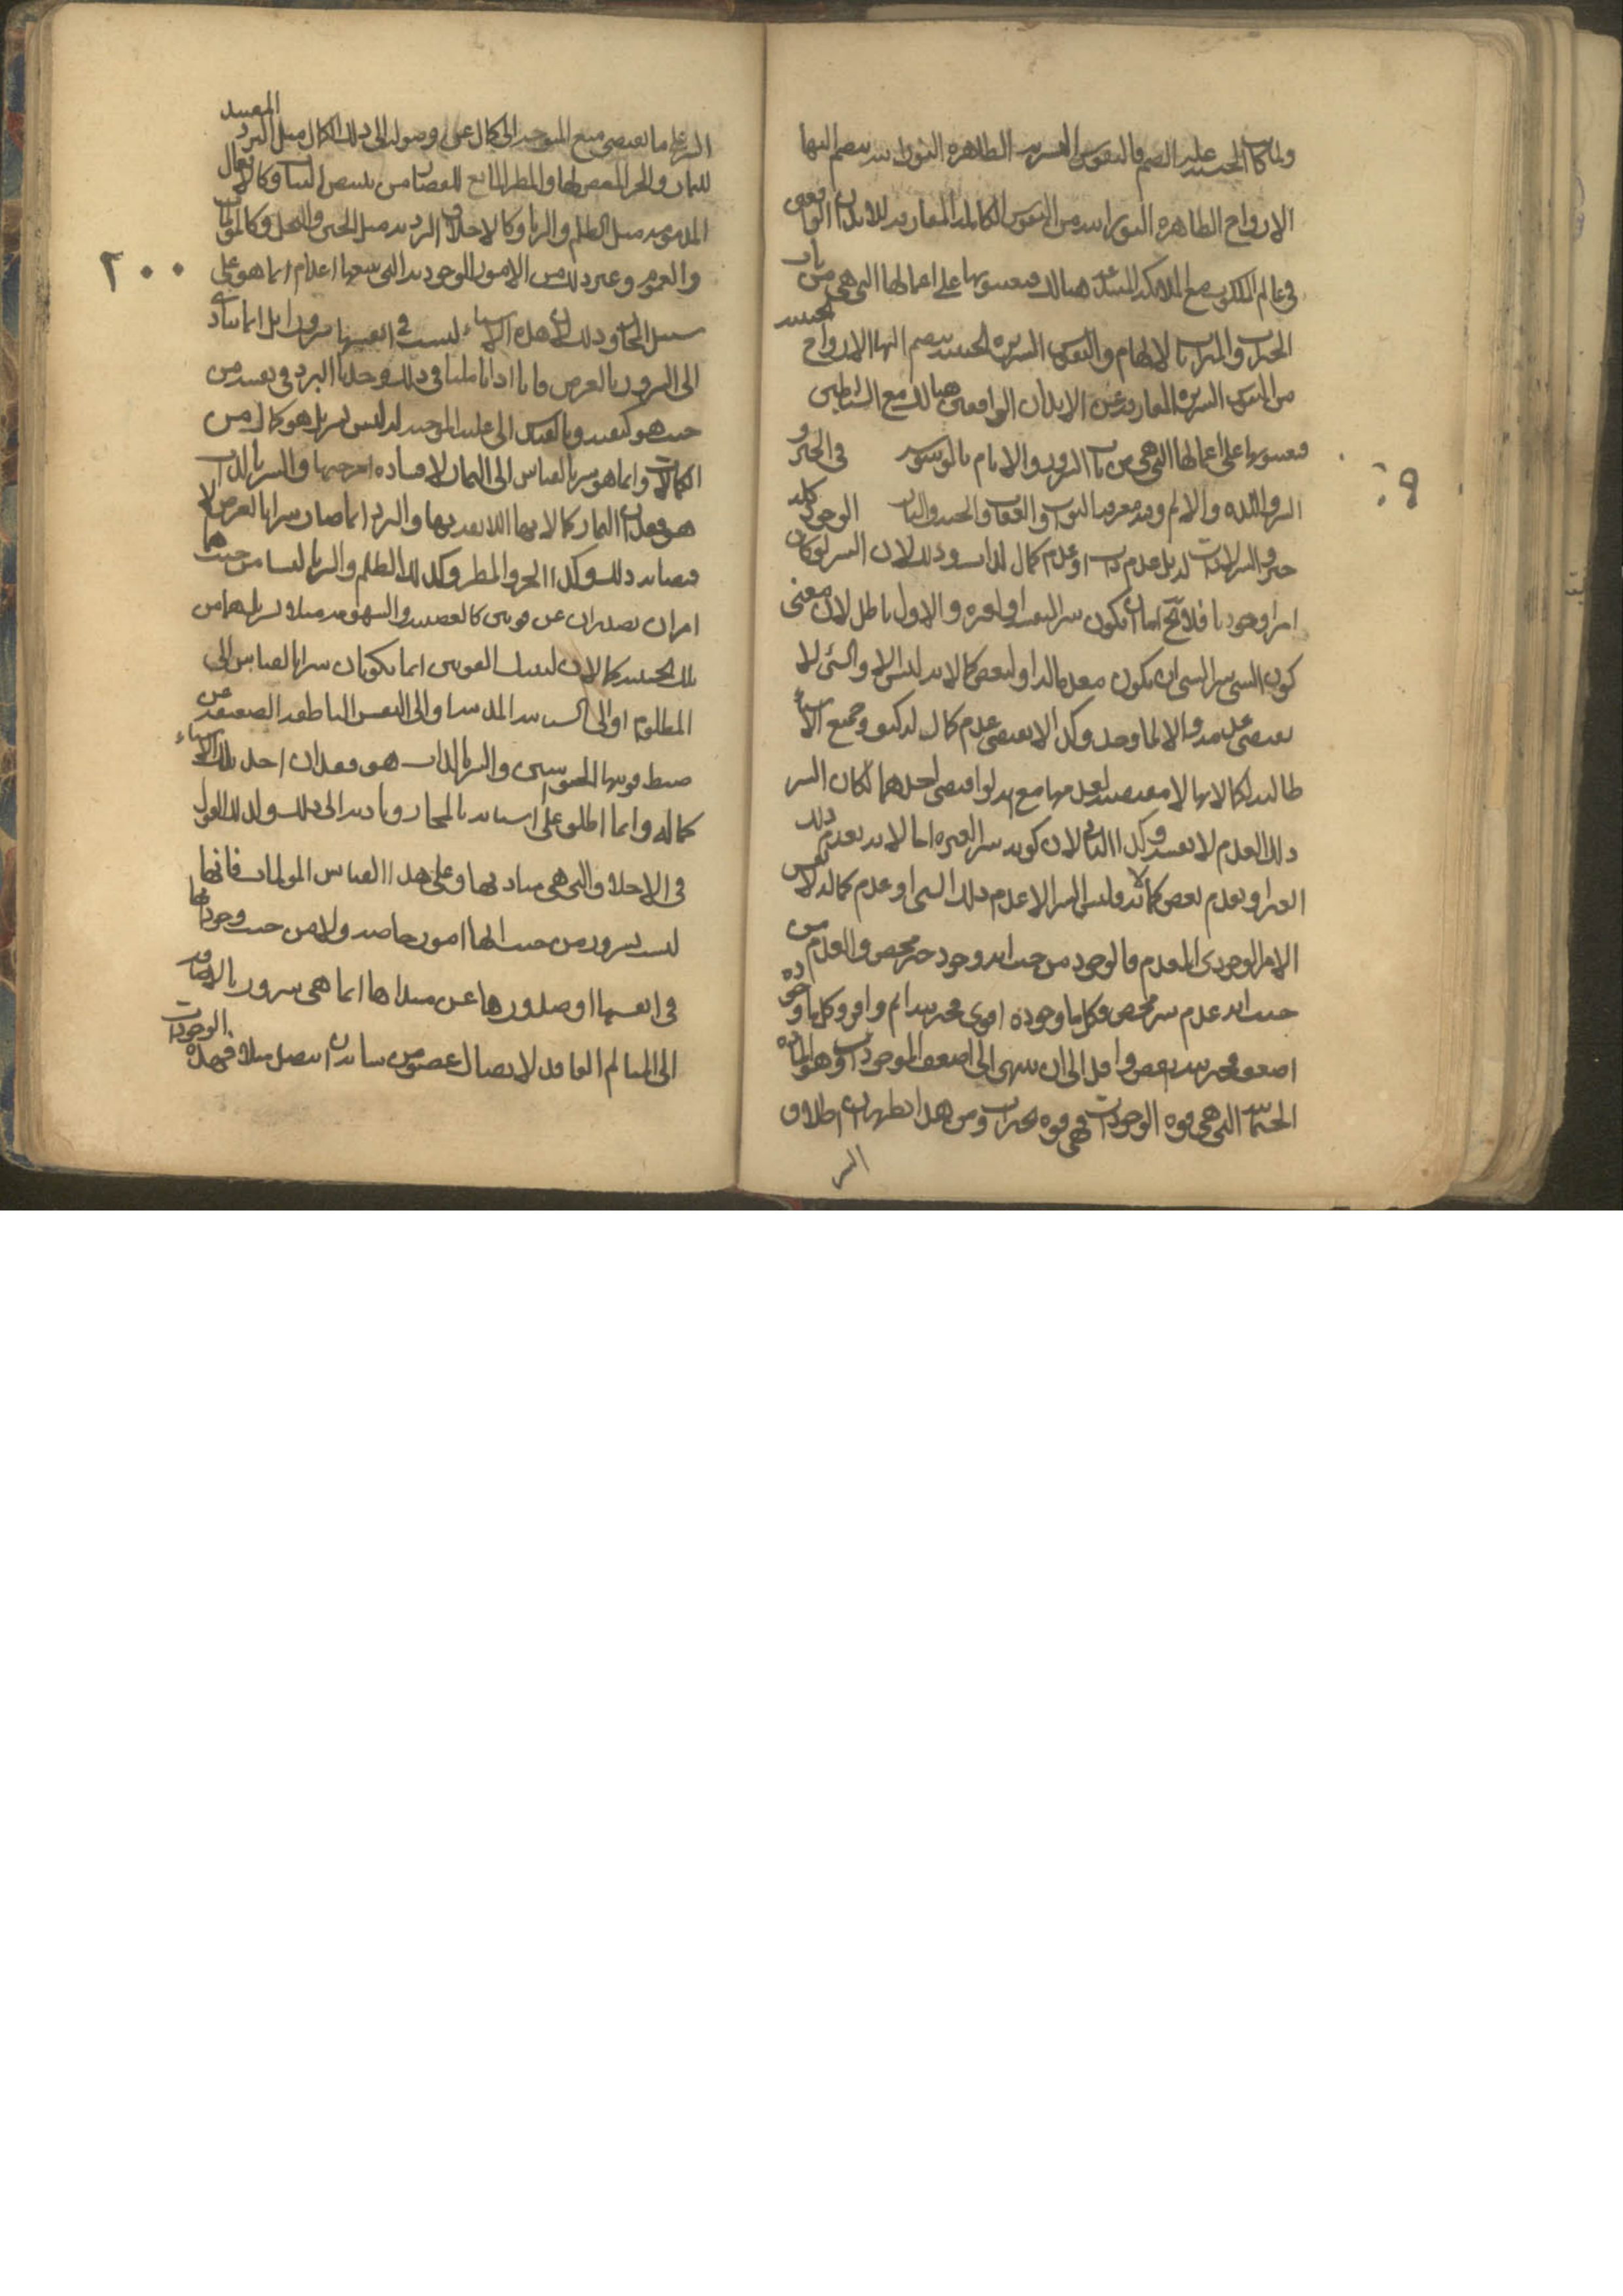 ولما كان الجنسية علة الضم فالنفوس الشريفة الطاهرة النورانية ينضم اليها
الارواح الطاهرة النورانية من النفوس الكاملة المفارقة للابدان الواقعين
في عالم الملكوت مع الملائكة هنالك فيعينونها على اعمالها التي هي من باب
الخيرات والمبرات بالالهام والنفوس الشريرة الخبيثة ينضم اليها الارواح الخبيثة
من النفوس الشريرة المفارقة عن الابدان الواقعين هنالك مع الشياطين
فيعينونها على اعمالها التي هي من باب الشرور والاثام بالوسوسة في الخير و
الشر واللذة والالم وفيه معرفة الثواب والعقاب والجنة والنار الوجود كله
خير والشر لا ذات له بل عدم ذات او عدم كمال لذات وذلك لان الشر لو كان
امرا وجوديا فلا يخ اما ان يكون شرا لنفسه او لغيره والاول باطل لان معنى
كون الشي شرا لشي ان يكون معدما له او لبعض كمالاته ليس الا والشي لا
يقتضي عدمه والا لما وجد وكذا لا يقتضي عدم كمال له كيف وجميع الاشياء
طالبة لكمالاتها لا مقتضية لعدمها مع انه لو اقتضى احدهما لكان الشر
ذلك العدم لا نفسه وكذا الثاني لان كونه شرا لغيره اما لانه يعدم ذلك
الغير او يعدم بعض كمالاته وليس الشر الا عدم ذلك الشي او عدم كماله لا نفس
الامر الوجودي المعدم فالوجود من حيث انه وجود خير محض والعدم من
حيث انه عدم شر محض فكل ما وجوده اقوى فخيريته اتم واوفر وكل ما وجوده
اضعف فخيريته انقص واقل الى ان ينتهي الى اضعف الموجودات وهو المادة
الجسمانية التي هي قوة الوجودات فهي قوة الخيرات ومن هذا يظهر ان اطلاق
الشر
الشر على ما يقتضي منع المتوجه الى كمال عن وصوله الى ذلك الكمال مثل البرد المفسد
للثمار والحر المعفن لها والمطر المانع للقصار من تبييض الثياب وكالافعال
المذمومة مثل الظلم والزنا وكالاخلاق الرذيلة مثل الجبن والبخل وكالالام
والغموم وغير ذلك من الامور الوجودية التي يتبعها اعدام انما هو على
سبيل المجاز وذلك لان هذه الاشياء ليست في انفسها شرورا بل انما يتادى
الى الشرور بالعرض فانا اذا تاملنا في ذلك وجدنا البرد في نفسه من
حيث هو كيفية وبالقياس الى علته الموجبة له ليس بشر بل هو كمال من
الكمالات وانما هو شر بالقياس الى الثمار لافساده امزجتها والشر بالذات
هو فقدان الثمار كمالاتها اللائقة بها والبرد انما صار شرا بالعرض لا
قتضائه ذلك وكذا الحر والمطر وكذلك الظلم والزنا ليسا من حيث هما
امران يصدران عن قوتين كالغضبية والشهوية مثلا بشر بل هما من
تلك الحيثية كمالان لتينك القوتين انما يكونان شرا بالقياس الى
المظلوم او الى السياسة المدنية او الى النفس الناطقة الضعيفة عن
ضبط قوتيها الحيوانيتين والشر بالذات هو فقدان احد تلك الاشياء
كماله وانما اطلق على اسبابه بالمجاز وتاديه الى ذلك وكذلك القول
في الاخلاق التي هي مباديها وعلى هذا القياس المولمات فانها
ليست بشرور من حيث انها امور خاصة ولا من حيث وجوداتها
في انفسها او صدورها عن مبداها انما هي شرور بالاضافة
الى المتالم الفاقد لاتصال عضو من شانه ان يتصل مثلا فهذه الوجودات
٢٠٠